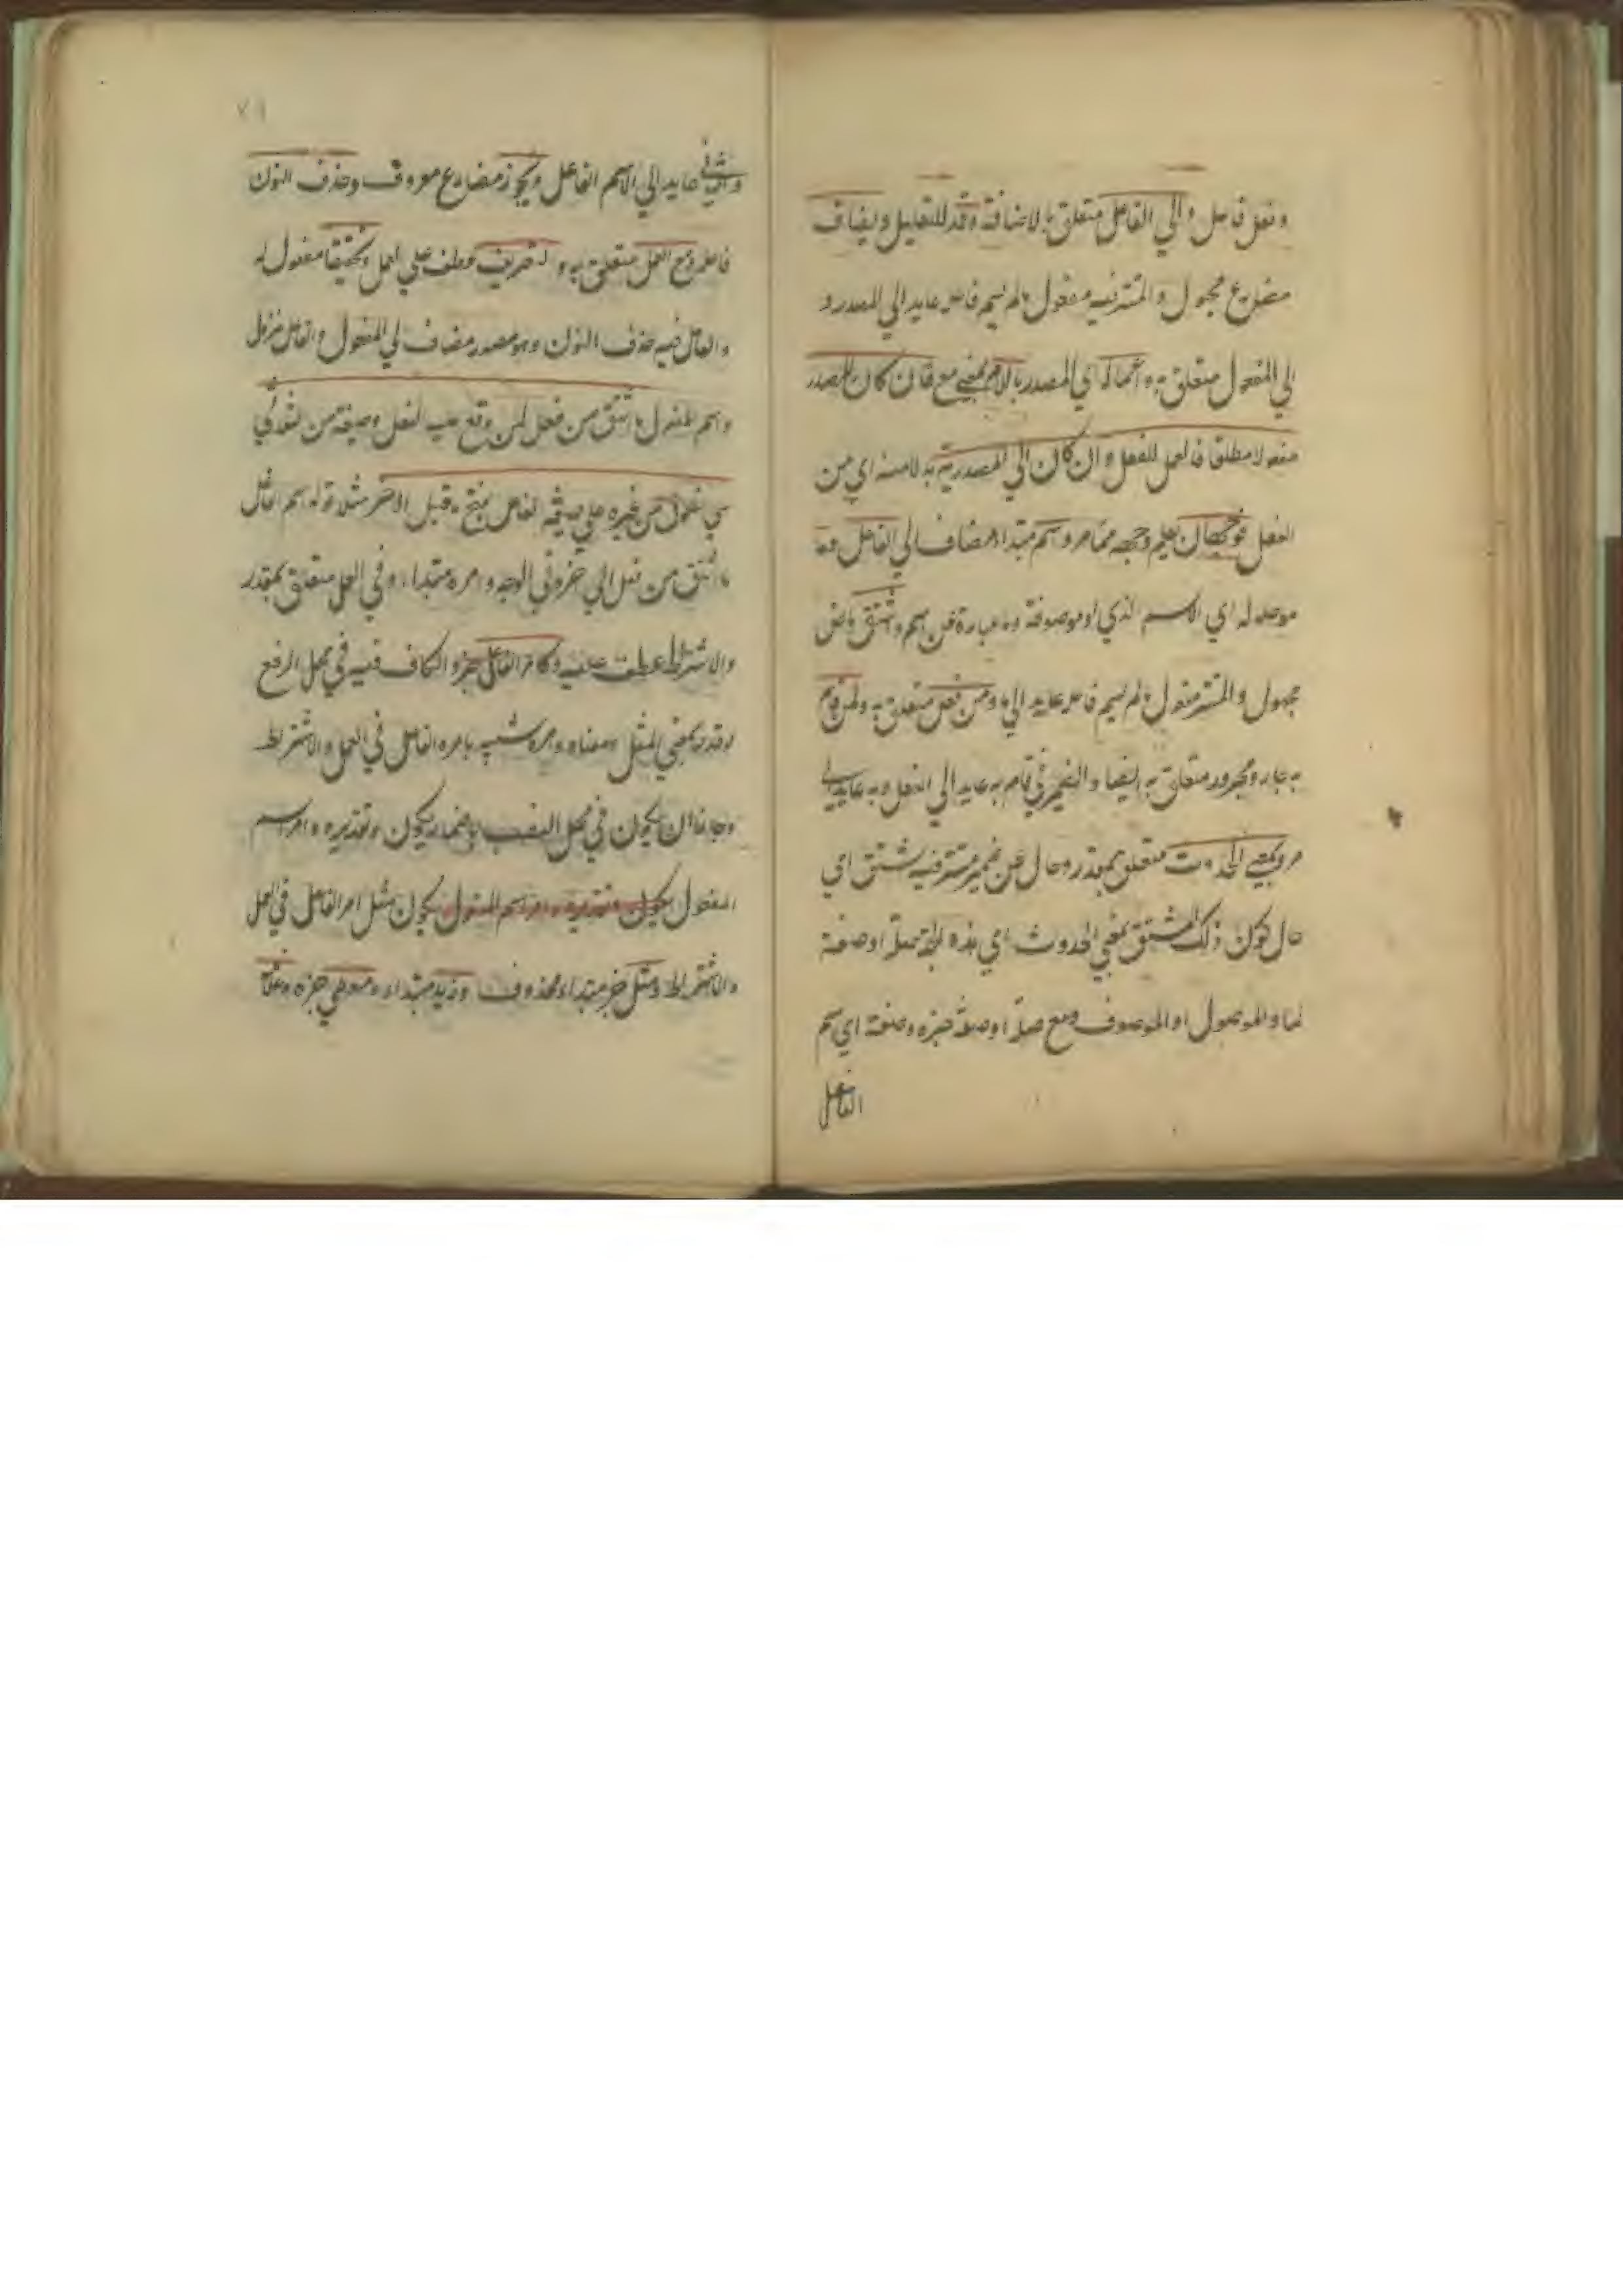 وفعل فاعل والي الفاعل متعلق بالاضافة وقد للتقليل ويضاف
مضارع مجهول والمستتر فيه مفعول ما لم يسم فاعله عايد الي المصدر و
الي المفعول متعلق به واعماله اي المصدر باللام بمعني مع فان كان المصدر
مفعولا مطلقا فالعمل للفعل وان كان اي المصدر بدلا منه اي من
الفعل فوجهان يعلم وجهه مما مر واسم مبتداء مضاف الي الفاعل وما
موصوله اي الاسم الذي او موصوفة وما عبارة عن اسم واشتق ماض
مجهول والمستتر مفعول ما لم يسم فاعله عايد الي ما ومن فعل متعلق به ولمن قام
به جار ومجرور متعلق به ايضا والضمير في قام به عايد الي الفعل وبه عايد الي
من وبمعني الحدوث متعلق بمقدر وحال عن ضمير مستتر فيه يشتق اي
حال كون ذلك المشتق بمعني الحدوث اي هذه الجملة صلة او صفة
لما والموصول او الموصوف ومع صلة او صفة خبره وصيغة اي اسم
الفاعل
٧١
والثاني عايد الي الاسم الفاعل ويجوز مضارع معروف وحذف النون
فاعله ومع العمل متعلق به والتعريف عطف علي العمل وتخفيفا مفعول له
والعامل فيه حذف النون وهو مصدر مضاف الي المفعول والفاعل متروك
واسم المفعول ما اشتق من فعل لمن وقع عليه الفعل وصيغته من الثلاثي
علي مفعول من غيره علي صيغة الفاعل بفتح ما قبل الاخر مثلا قوله اسم الفاعل
ما اشتق من فعل الي اخره في الوجه وامره مبتداء وفي العمل متعلق بمقدر
والاشتراط عطف عليه وكامر الفاعل خبره الكاف فيه في محل الرفع
لوقوعه بمعني المثل ومعناه وامره شبيه بامره الفاعل في العمل والاشتراط
وجاز ان يكون في محل النصب باضمار يكون وتقديره وامر اسم
المفعول يكون وتقديره وامر اسم المفعول يكون مثل امر الفاعل في العمل
والاشتراط ومثل خبر مبتداء محذوف وزيد مبتداء ومعطي خبره وغلامه